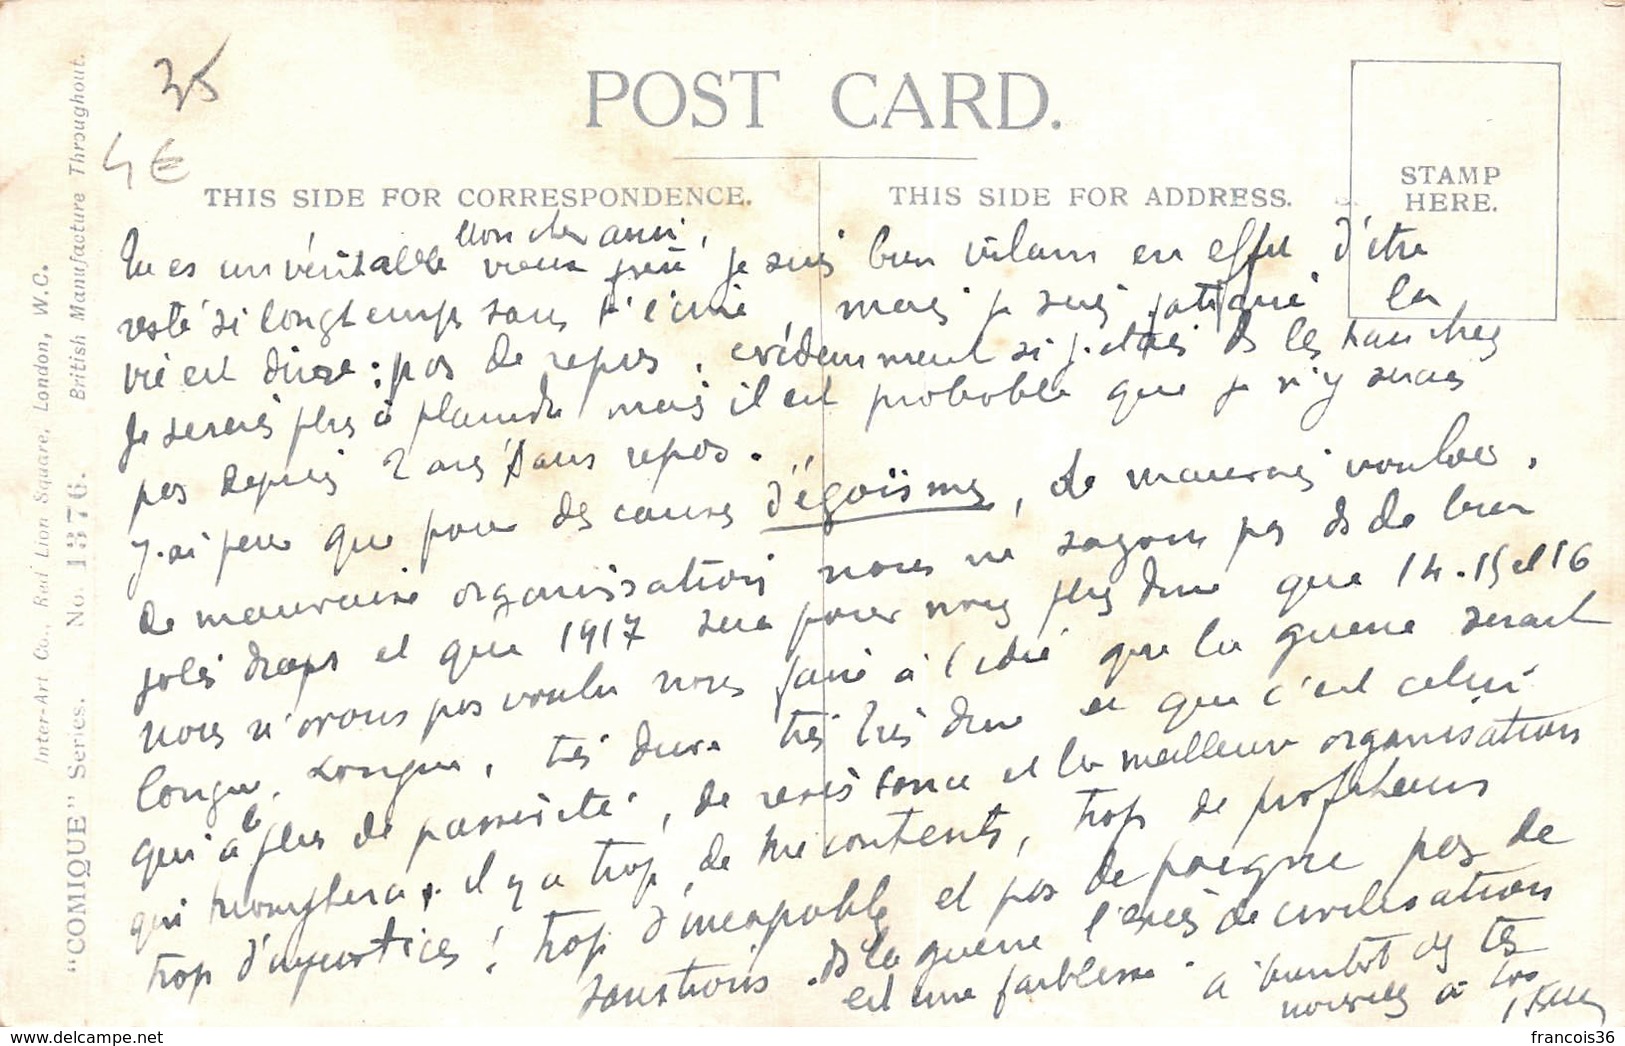 35
4€
POST CARD.
THIS SIDE FOR CORRESPONDENCE.
THIS SIDE FOR ADDRESS.
STAMP
HERE.
Inter-Art Co., Red Lion Square, London, W.C.
British Manufacture Throughout.
"COMIQUE" Series. No. 1376.
Mon cher ami,
Tu es un véritable vieux je suis bien vilain en effet d'être
resté si longtemps sans t'écrire, mais je suis fatigué la
vie est dure : pas de repos, évidemment si j'étais ds les tranchées
je serais plus à plaindre mais il est probable que je n'y serais
pas depuis 2 ans sans repos.
J'ai peur que pour des causes d'égoïsmes, de mauvais vouloir,
de mauvaise organisation nous ne soyons pas ds de bien
jolis draps et que 1917 sera pour nous plus dure que 14.15 et 16
nous n'avons pas voulu nous faire à l'idée que la guerre serait
longue, longue, très dure très très dure et que c'est celui
qui a le plus de , de résistance et la meilleure organisation
qui triomphera. il y a trop de mécontents, trop de profiteurs
trop d'injustices ! trop d'incapables et pas de poigne pas de
sanctions. Ds la guerre l'excès de civilisation
est une faiblesse. à bientôt de tes
nouvelles à toi
francois36